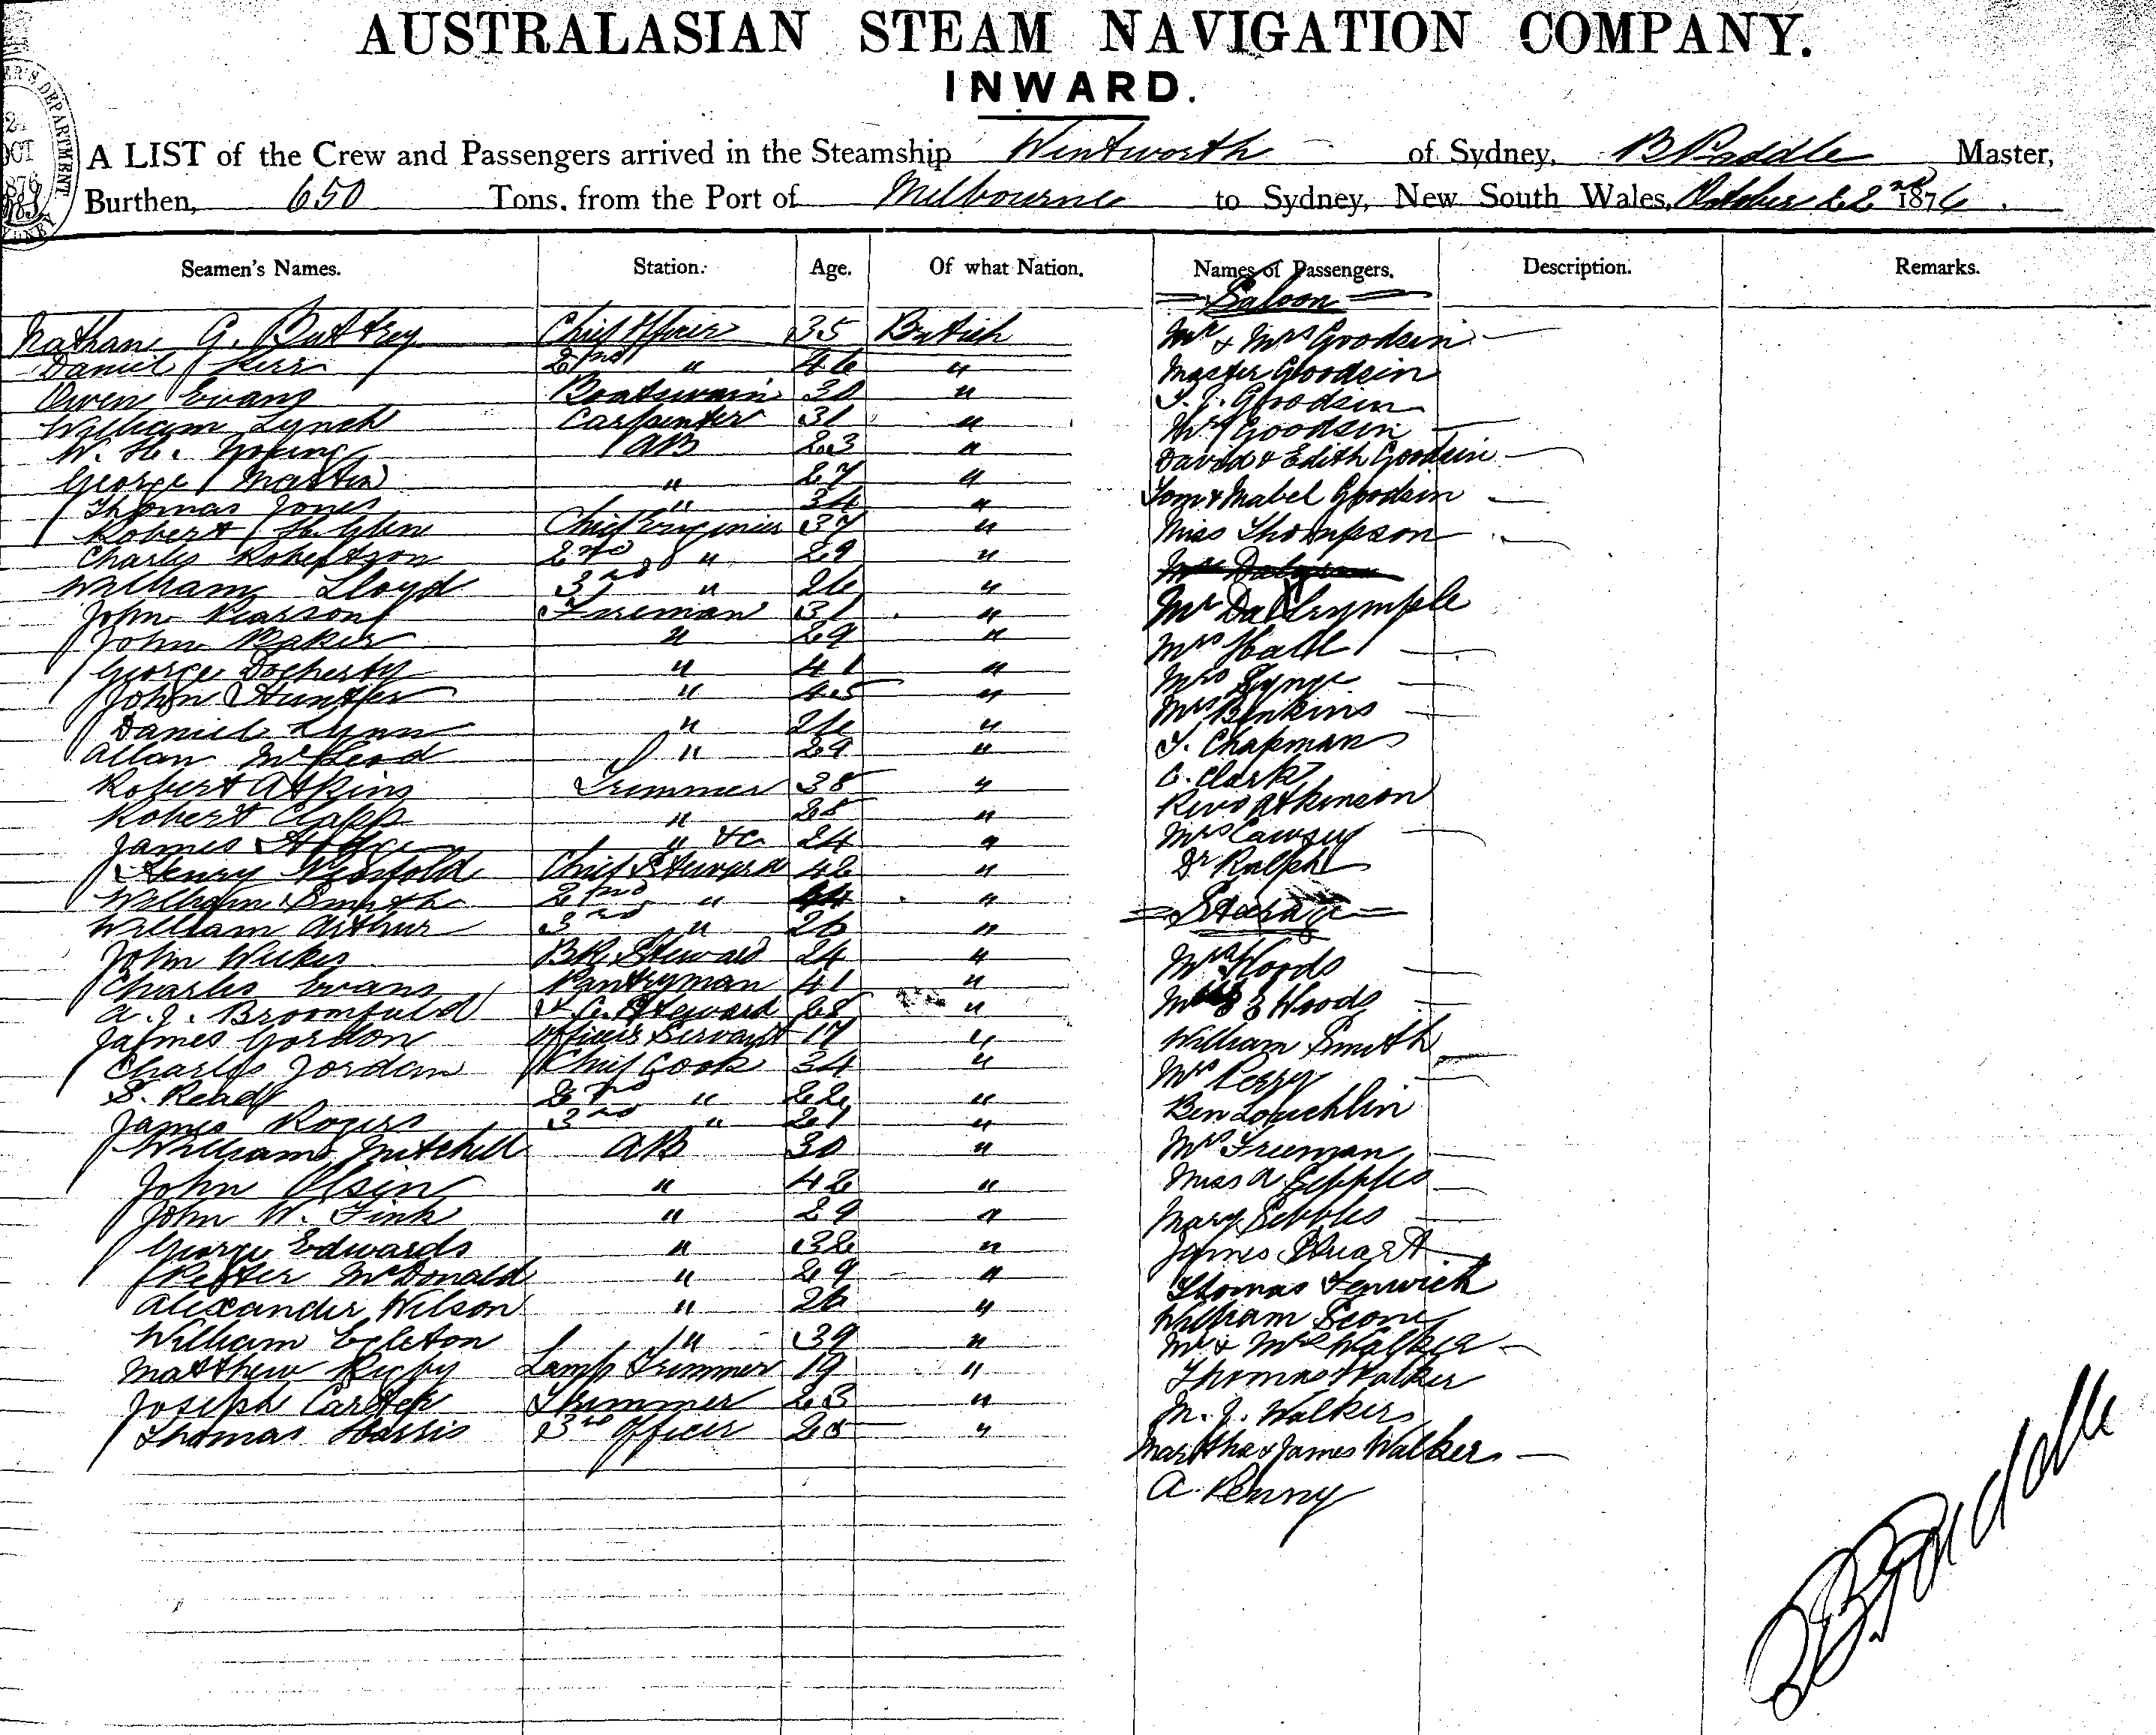 AUSTRALASIAN STEAM NAVIGATION COMPANY.
INWARD.
A LIST of the Crew and Passengers arrived in the Steamship Wentworth of Sydney, B Paddle Master,
Burthen, 650 Tons. from the Port of Melbourne to Sydney, New South Wales, October 22nd 1876.
Seamen's Names. Station. Age. Of what Nation. Names of Passengers. Description. Remarks.
Saloon
Nathan G. Buttrey Chief Officer 35 British Mr & Mrs Goodsin
Daniel Kerr 2nd " 46 " Master Goodsin
Owen Evans Boatswain 30 " Goodsin
William Lynch Carpenter 31 " Goodsin
W. H. Young AB 23 " David & Edith Goodsin
George Martin " 27 " Tom & Mabel Goodsin
Thomas Jones " 34 " Miss Thompson
Robert Glen Chief Engineer 37 "
Charles Robertson 2nd " 29 "
William Lloyd 3rd " 26 " Mr Dalrymple
John Pearson Fireman 31 " Mrs Hall
John Baker " 29 " Mrs
George Docherty " 41 " Mrs
John Hunter " 45 " T. Chapman
Daniel Lynn " 26 " C. Clark
Allan McLeod " 29 " Revd Atkinson
Robert Atkins Trimmer 38 " Mrs
Robert Clapp " 25 " Dr Ralph
James " &c 24 "
Henry Chief Steward 42 " Steerage
William Smith 2nd " 44 "
William Arthur 3rd " 26 " Woods
John BR Steward 24 " Woods
Charles Evans Pantryman 41 " William Smith
A. J. Broomfield Steward 28 " Perry
James Gordon Officers Servant 17 " Ben Louchlin
Charles Jordan Chief Cook 34 " Freeman
S. Ready 2nd " 22 " Miss A.
James Rogers 3rd " 21 " Mary
William Mitchell AB 30 " James Stuart
John Olsen " 42 " Thomas Fenwick
John W. Fink " 29 " William
George Edwards " 32 " Mr & Mrs Walker
Peter McDonald " 29 " Thomas Walker
Alexander Wilson " 26 " M. J. Walker
William Egleton " 39 " Martha & James Walker
Matthew Rigby Lamp Trimmer 19 " A. Penny
Joseph Carter Trimmer 23 "
Thomas Harris 3rd Officer 25 "
B Paddle